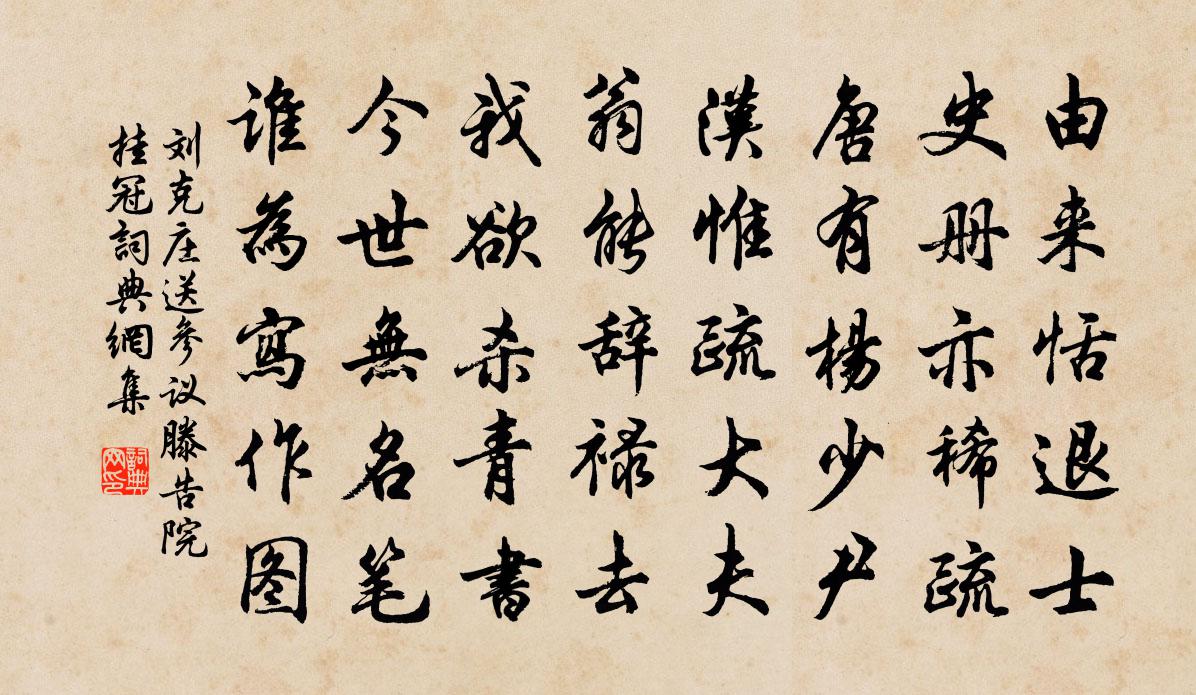 由来恬退士
史册亦稀疏
唐有杨少尹
漢惟疏大夫
翁能辞禄去
我欲杀青書
今世無名笔
谁為寫作图
刘克庄送参议滕告院
桂冠詞典網集
詞典网印